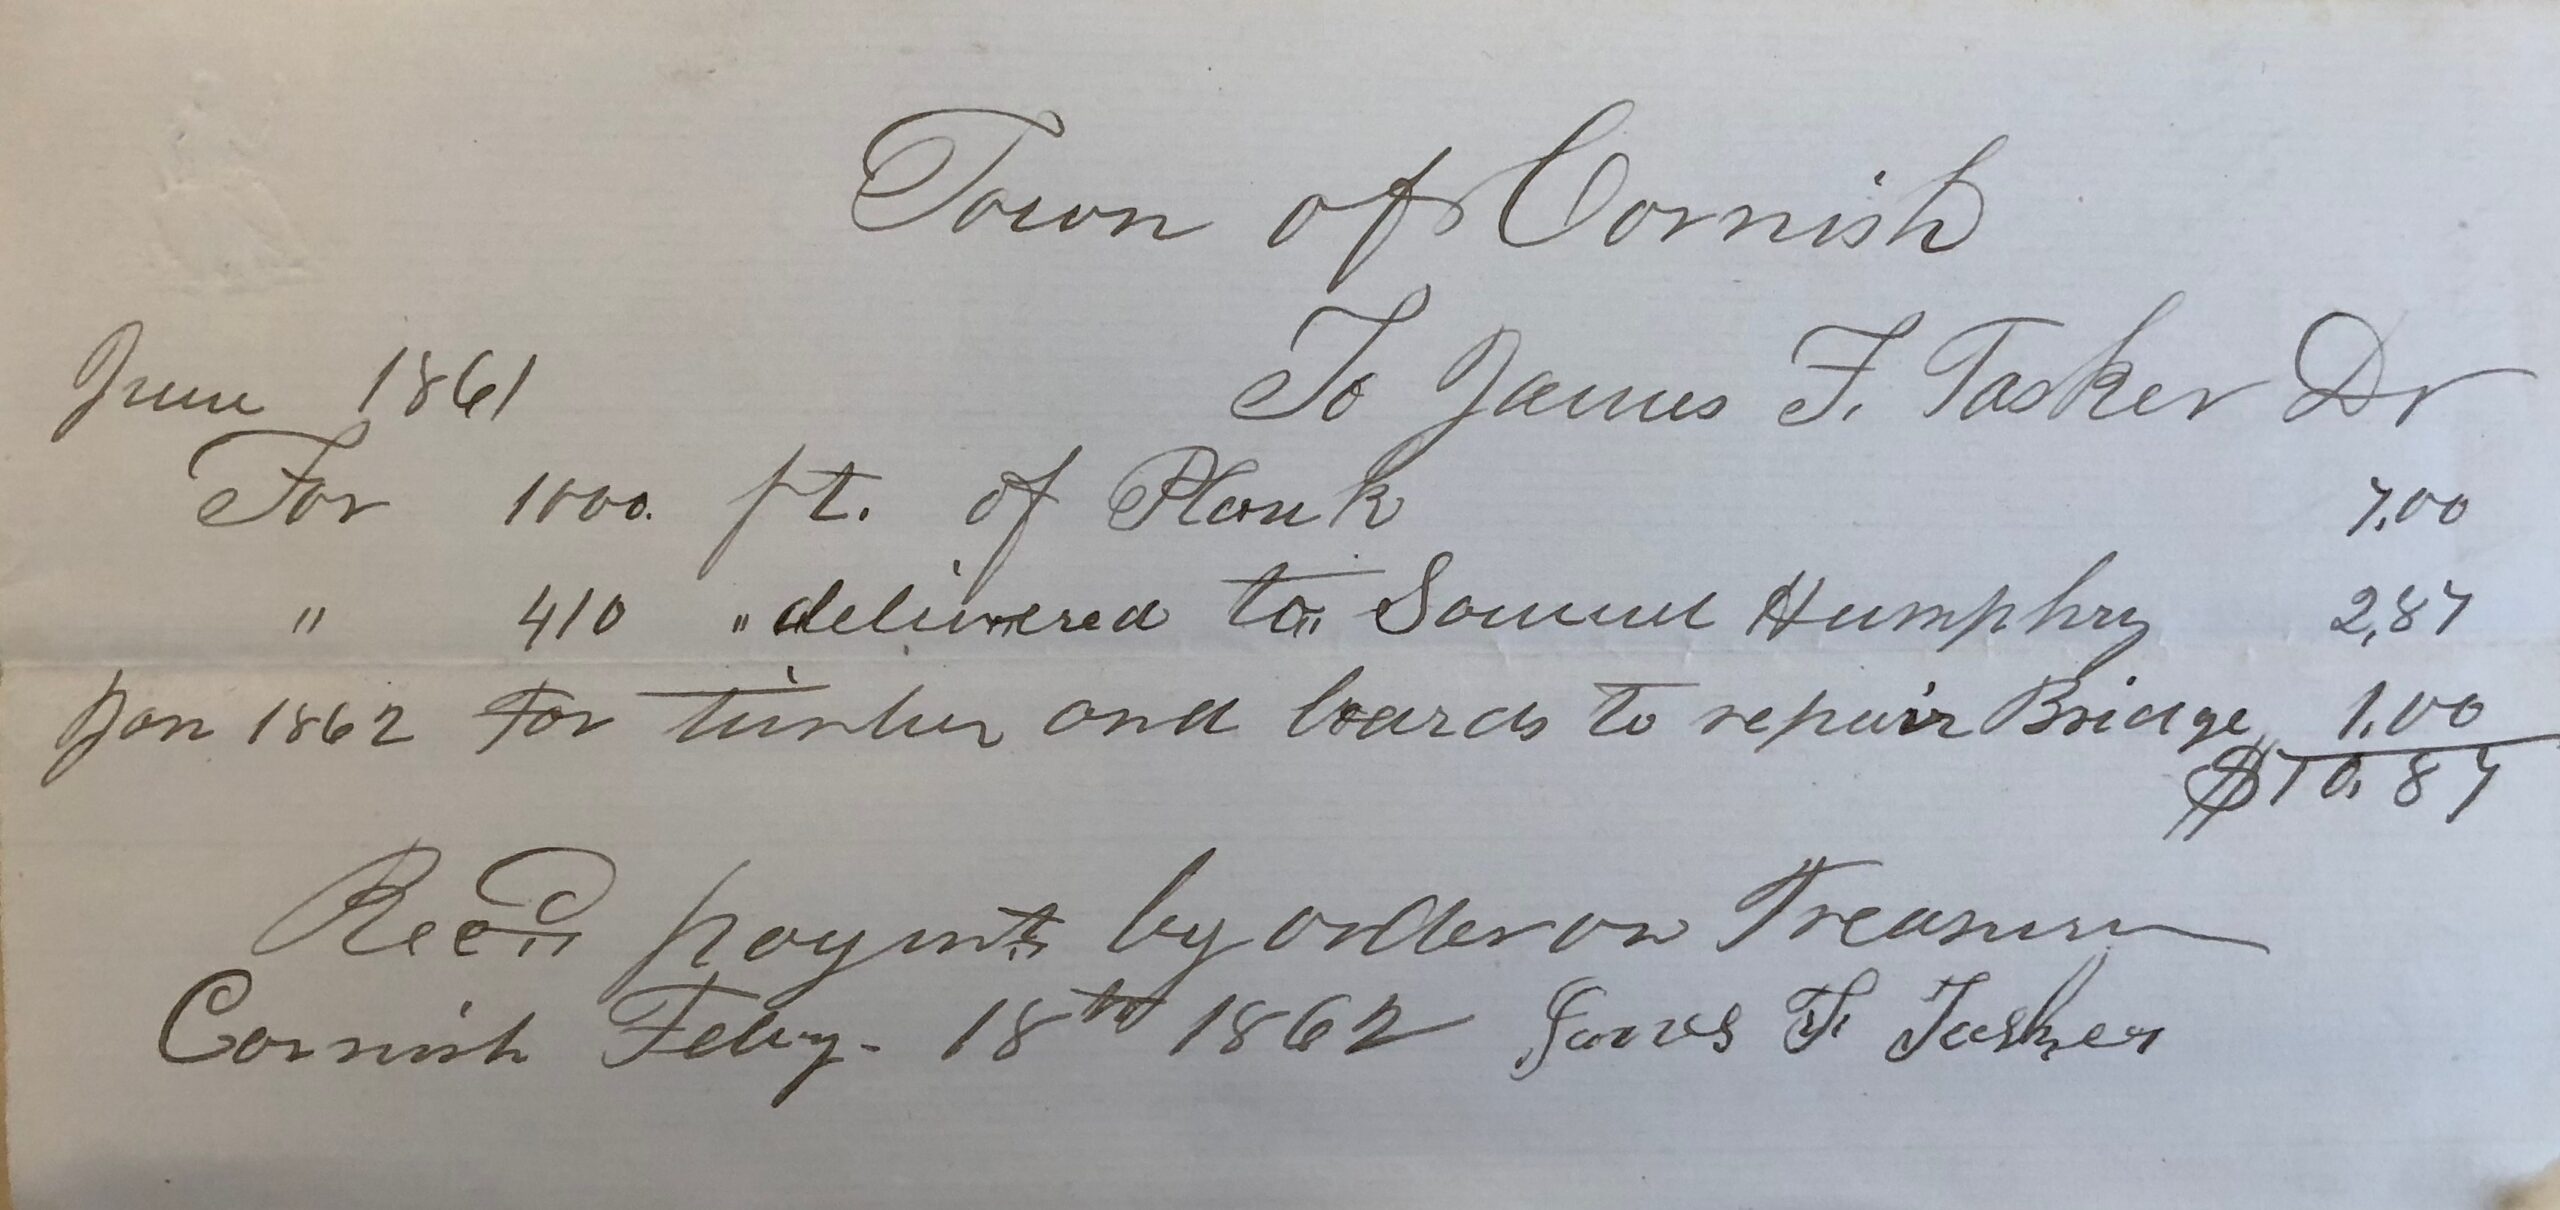 Town of Cornish
To James F. Tasker Dr
June 1861
For 1000. ft. of Plank 7.00
" 410 " delivered to Samuel Humphry 2,87
Jan 1862 For timber and boards to repair Bridge 1.00
$10.87
Recd paymt by order on Treasurer
Cornish Feby. 18th 1862 James F. Tasker